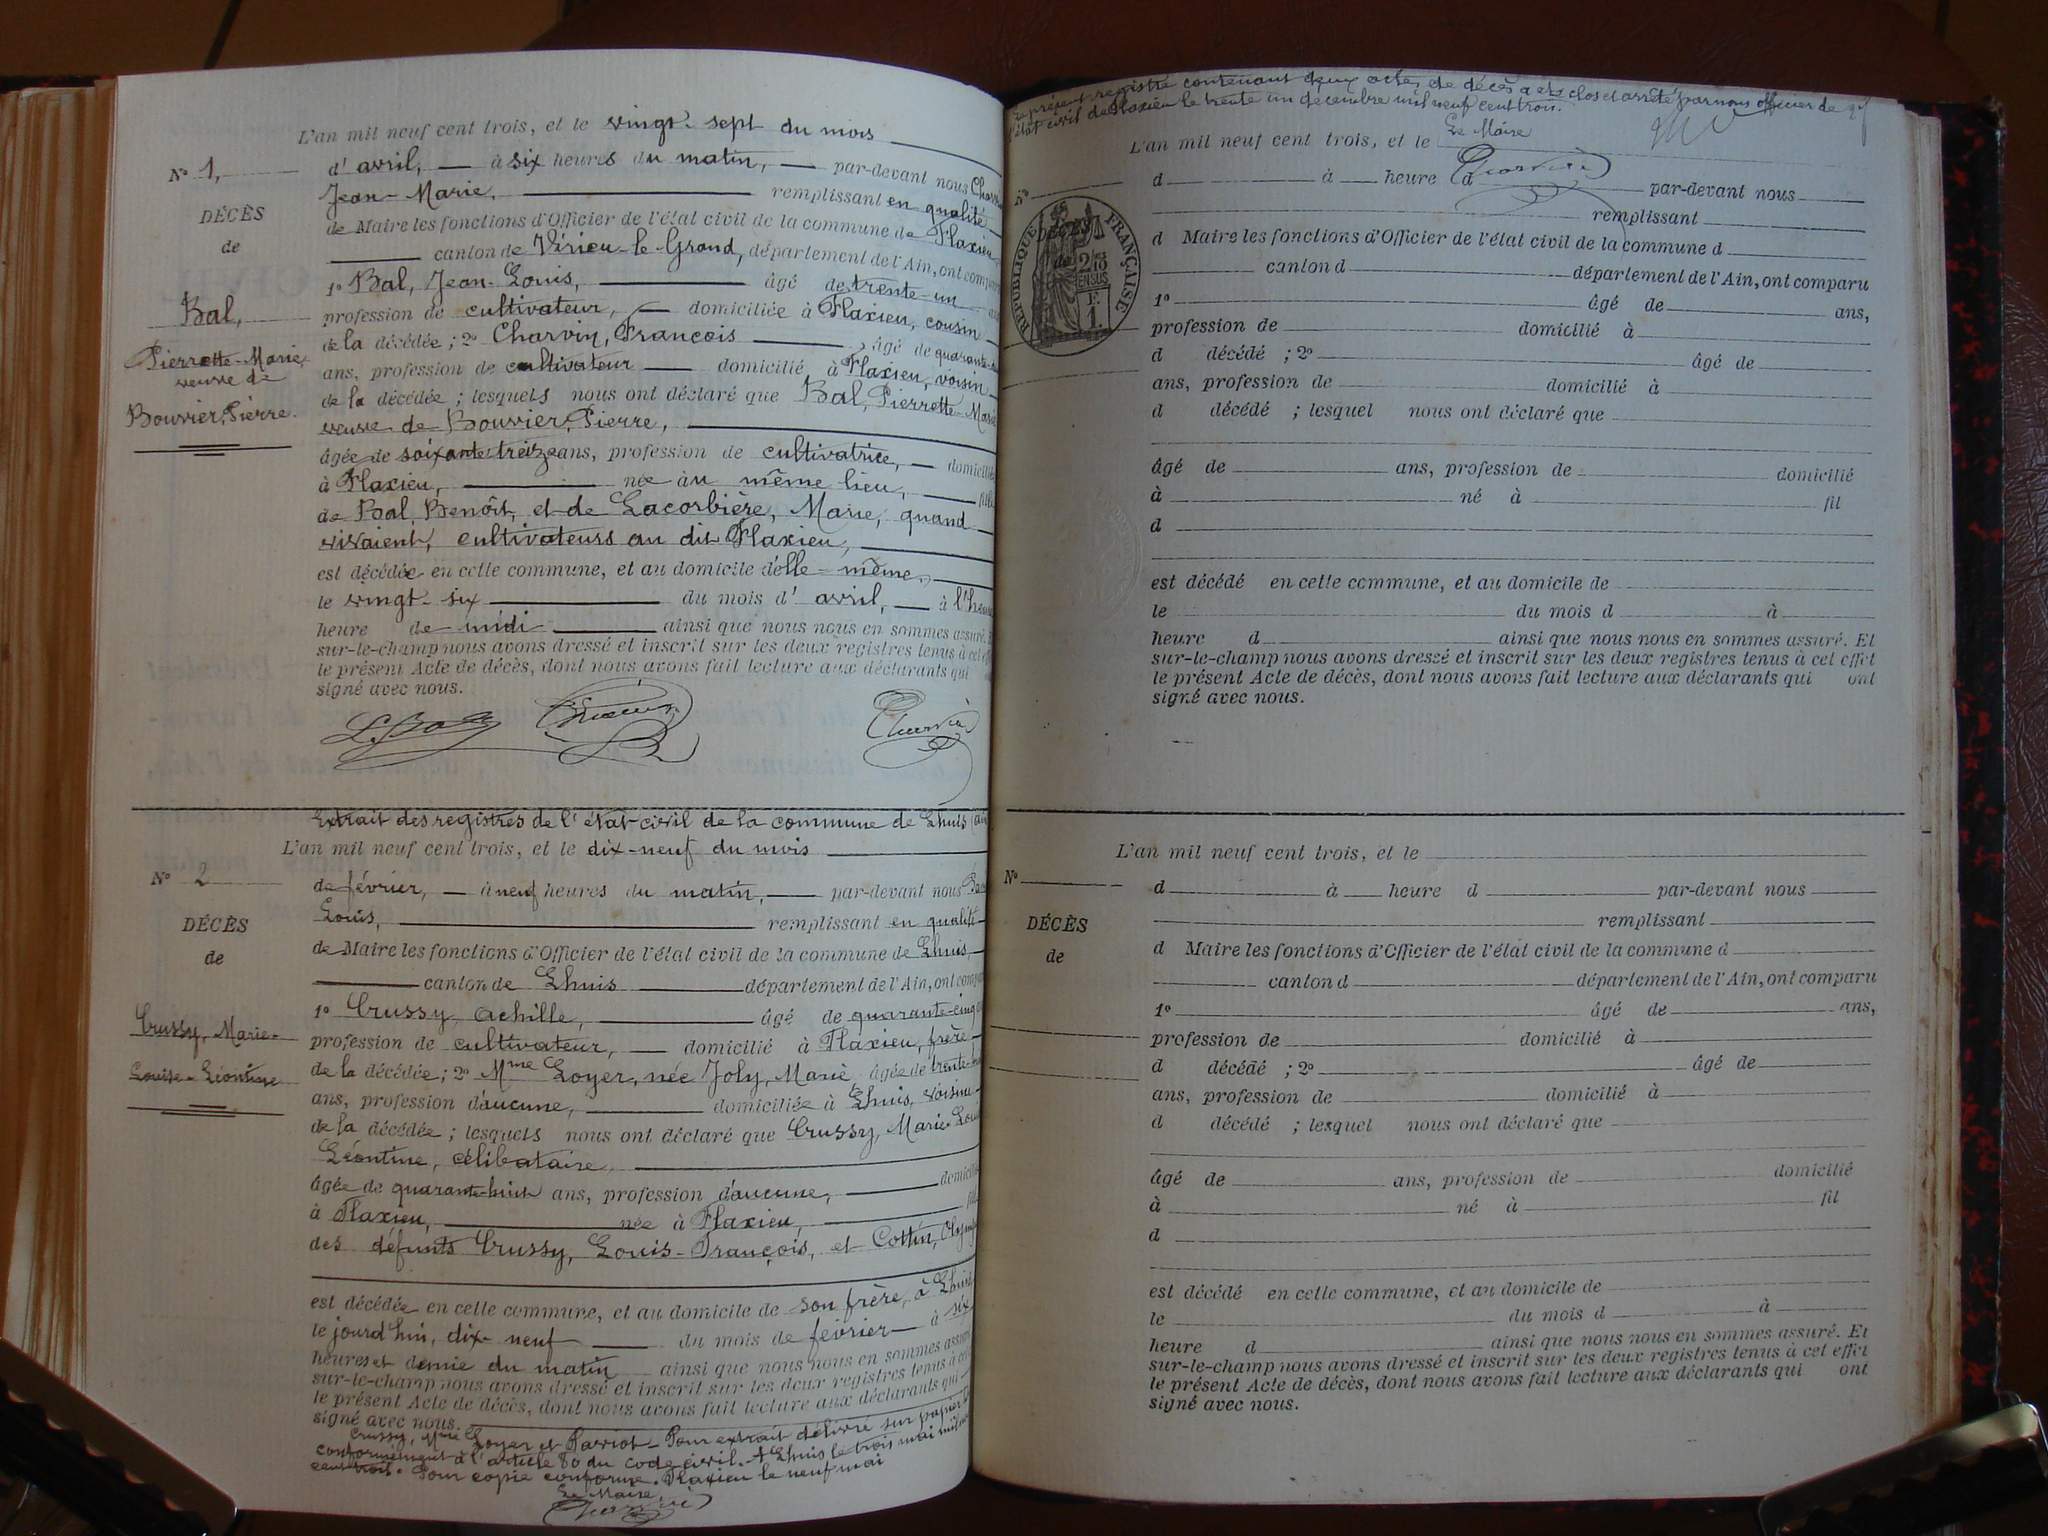 L'an mil neuf cent trois, et le vingt-sept du mois
N° 1,
d'avril, à six heures du matin, par-devant nous
Jean-Marie, remplissant en qualité
DÉCÈS
de Maire les fonctions d'Officier de l'état civil de la commune de Flaxieu,
de
canton de Virieu-le-Grand, département de l'Ain, ont comparu
1° Bal, Jean-Louis, âgé de trente-un
Bal,
profession de cultivateur, domiciliée à Flaxieu, cousin
Pierrette-Marie
de la décédée ; 2° Charvin, François, âgé de
veuve de
ans, profession de cultivateur domicilié à Flaxieu, voisin
Bouvier, Pierre.
de la décédée ; lesquels nous ont déclaré que Bal, Pierrette-Marie
veuve de Bouvier, Pierre,
âgée de soixante-treize ans, profession de cultivatrice, domiciliée
à Flaxieu, née au même lieu, fille
de Bal, Benoît, et de Lacorbière, Marie, quand
vivaient, cultivateurs au dit Flaxieu,
est décédée en cette commune, et au domicile d'elle-même,
le vingt-six du mois d'avril, à l'heure
heure de midi ainsi que nous nous en sommes assuré. Et
sur-le-champ nous avons dressé et inscrit sur les deux registres tenus à cet effet
le présent Acte de décès, dont nous avons fait lecture aux déclarants qui
signé avec nous.
L. Bal
Extrait des registres de l'état-civil de la commune de Lhuis (Ain
L'an mil neuf cent trois, et le dix-neuf du mois
N° 2
de février, à neuf heures du matin, par-devant nous
Louis, remplissant en qualité
DÉCÈS
de Maire les fonctions d'Officier de l'état civil de la commune de Lhuis,
de
canton de Lhuis département de l'Ain, ont comparu
1° Crussy, Achille, âgé de quarante-cinq
Crussy, Marie-
profession de cultivateur, domicilié à Flaxieu, frère
Louise-Léontine
de la décédée ; 2° Mme Loyer, née Joly, Marie âgée de
ans, profession d'aucune, domiciliée à Lhuis, voisine
de la décédée ; lesquels nous ont déclaré que Crussy, Marie-Louise
Léontine, célibataire,
âgée de quarante-huit ans, profession d'aucune, domiciliée
à Flaxieu, née à Flaxieu, fille
des défunts Crussy, Louis-François, et Cottin,
est décédée en cette commune, et au domicile de son frère, à Lhuis
le jourd'hui, dix-neuf du mois de février à six
heures et demie du matin ainsi que nous nous en sommes assuré
sur-le-champ nous avons dressé et inscrit sur les deux registres tenus à cet
le présent Acte de décès, dont nous avons fait lecture aux déclarants qui
signé avec nous.
Crussy, Mme Loyer et Pour extrait délivré sur papier
conformément à l'article 80 du code civil. A Lhuis le trois mai mil neuf
cent trois. Pour copie conforme. Flaxieu le neuf mai
Le Maire,
Le présent registre contenant deux actes de décès a été clos et arrêté par nous officier de
l'état civil de Flaxieu le trente un décembre mil neuf cent trois.
Le Maire
L'an mil neuf cent trois, et le
N°
d à heure d par-devant nous
remplissant
RÉPUBLIQUE FRANÇAISE
DÉCÈS
de
2/10 EN SUS
F.
1.
d Maire les fonctions d'Officier de l'état civil de la commune d
canton d département de l'Ain, ont comparu
1° âgé de ans,
profession de domicilié à
d décédé ; 2° âgé de
ans, profession de domicilié à
d décédé ; lesquel nous ont déclaré que
âgé de ans, profession de domicilié
à né à fil
d
est décédé en cette commune, et au domicile de
le du mois d à
heure d ainsi que nous nous en sommes assuré. Et
sur-le-champ nous avons dressé et inscrit sur les deux registres tenus à cet effet
le présent Acte de décès, dont nous avons fait lecture aux déclarants qui ont
signé avec nous.
L'an mil neuf cent trois, et le
N°
d à heure d par-devant nous
remplissant
DÉCÈS
d Maire les fonctions d'Officier de l'état civil de la commune d
de
canton d département de l'Ain, ont comparu
1° âgé de ans,
profession de domicilié à
d décédé ; 2° âgé de
ans, profession de domicilié à
d décédé ; lesquel nous ont déclaré que
âgé de ans, profession de domicilié
à né à fil
d
est décédé en cette commune, et au domicile de
le du mois d à
heure d ainsi que nous nous en sommes assuré. Et
sur-le-champ nous avons dressé et inscrit sur les deux registres tenus à cet effet
le présent Acte de décès, dont nous avons fait lecture aux déclarants qui ont
signé avec nous.